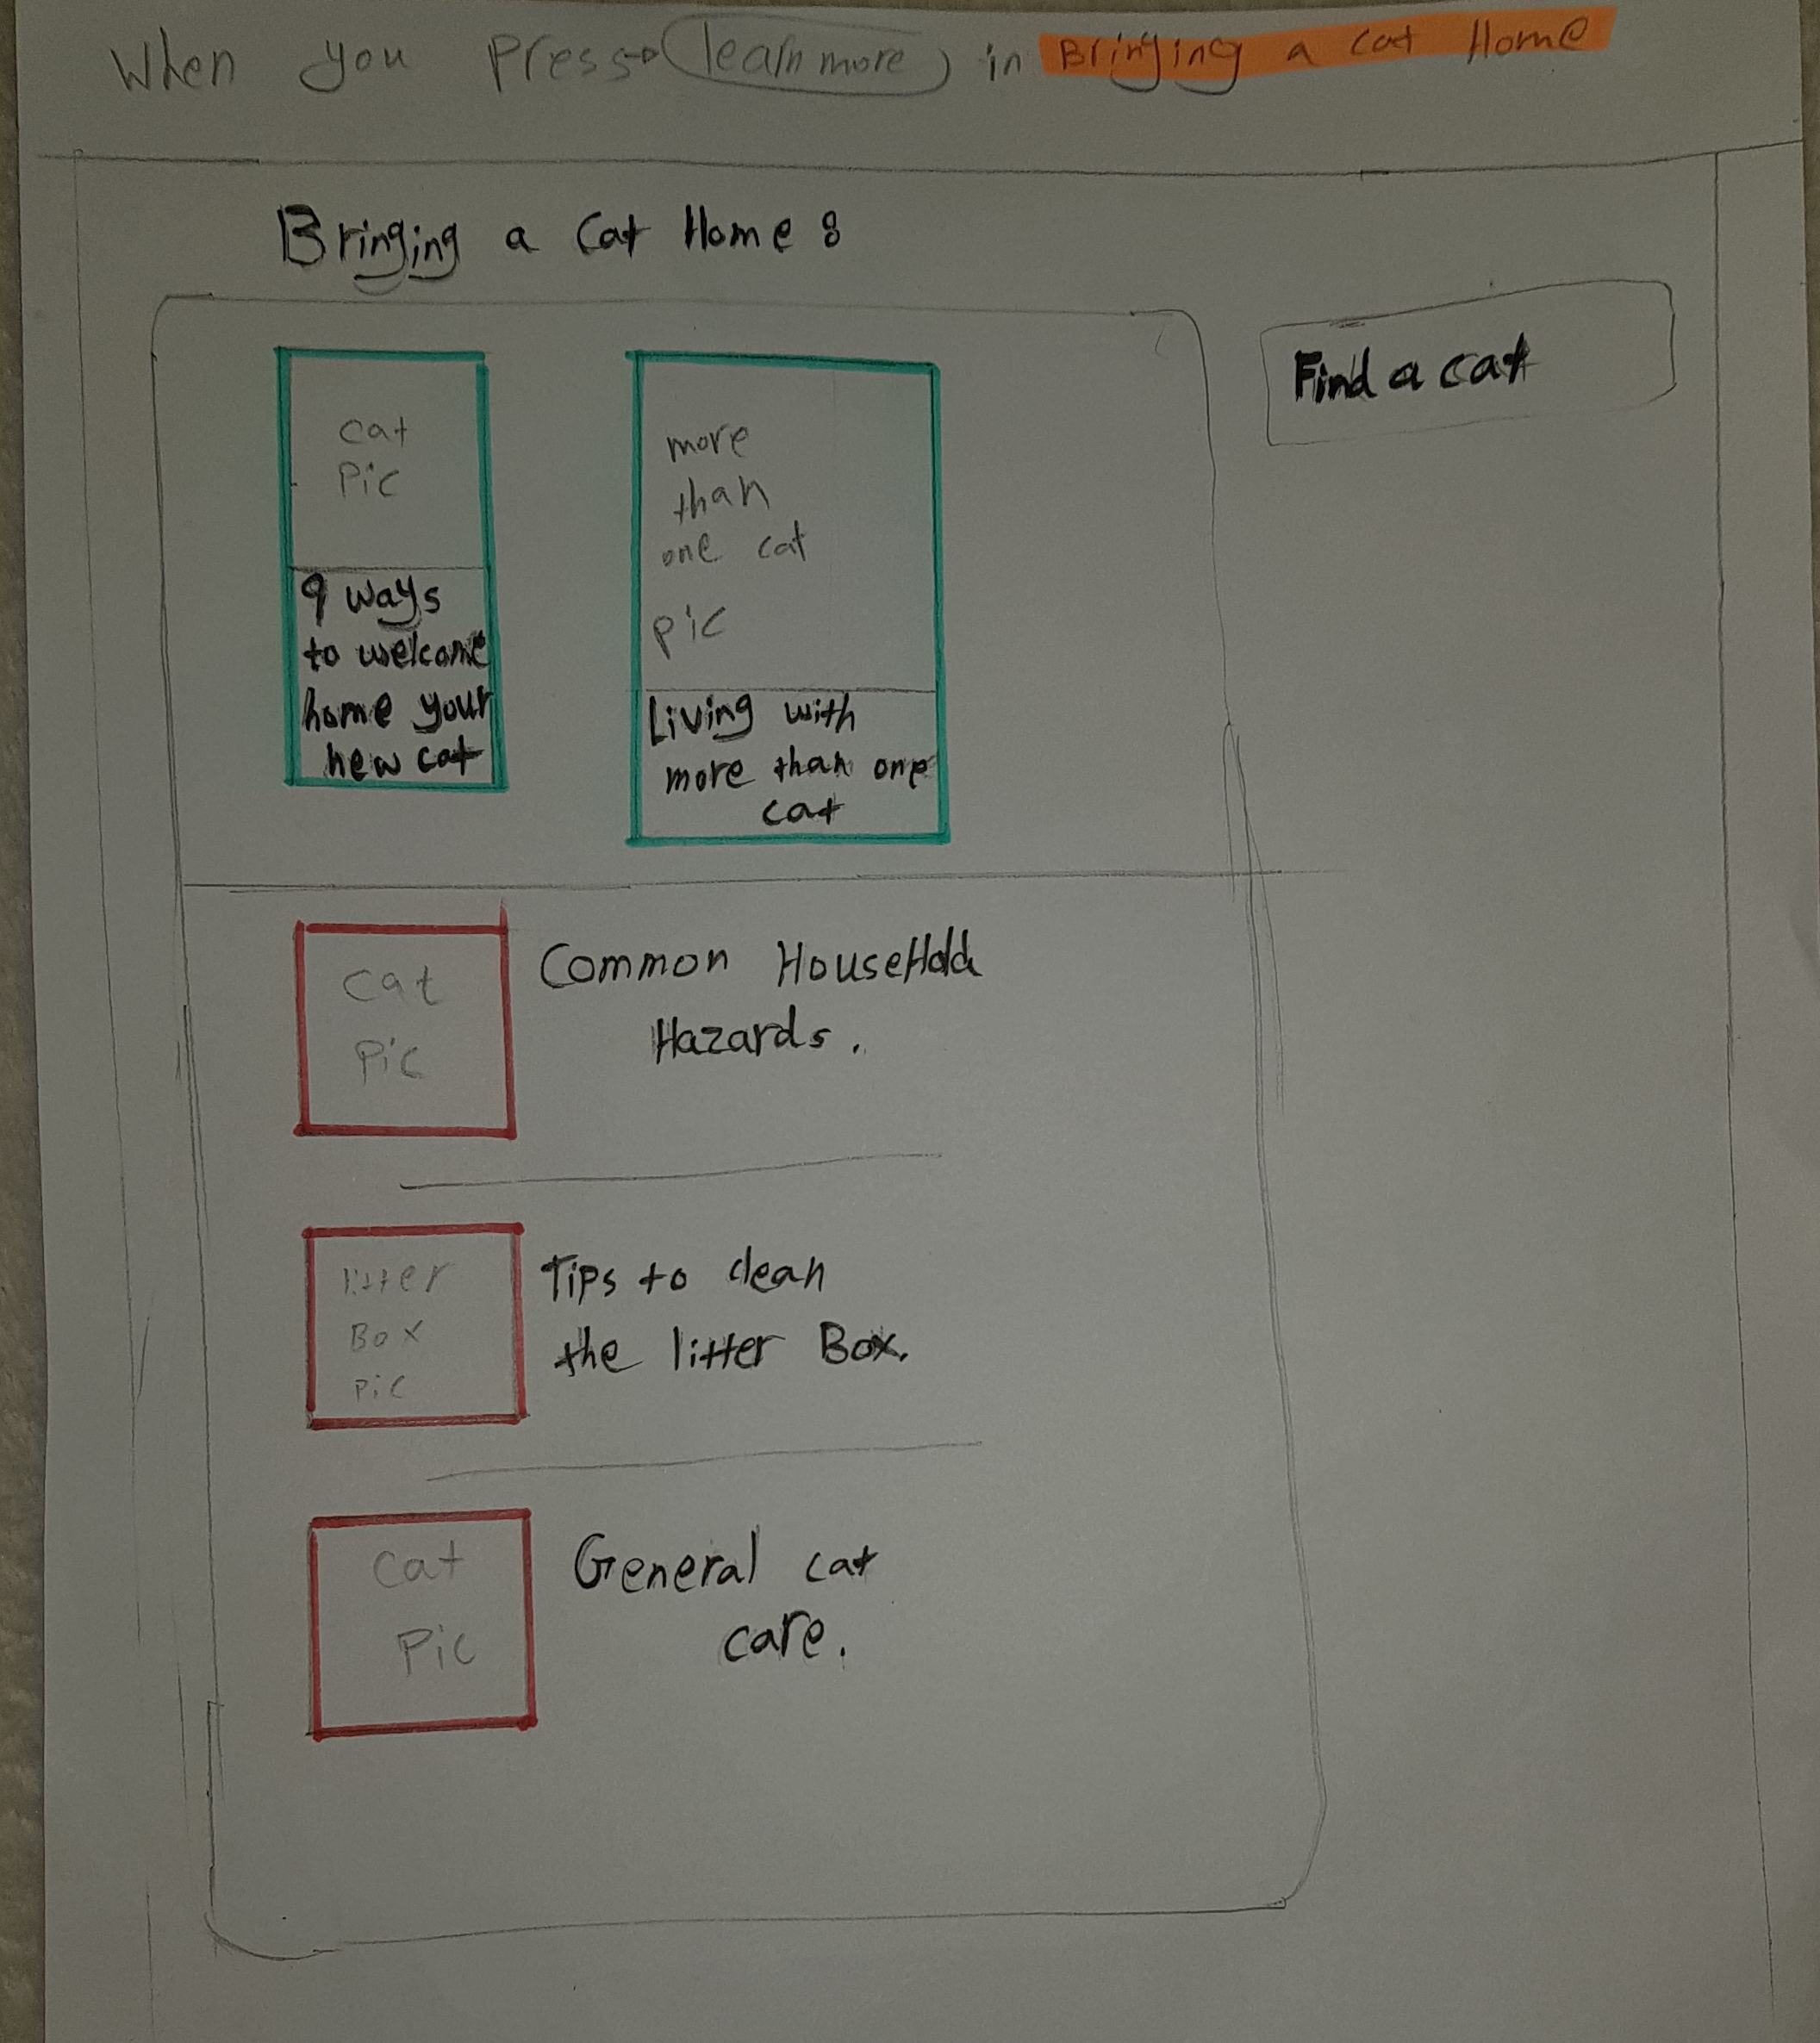 When you press→ learn more in Bringing a cat Home
Bringing a Cat Home :
Find a cat
cat
Pic
9 ways
to welcome
home your
new cat
more
than
one cat
pic
Living with
more than one
cat
Cat
Pic
Common HouseHold
Hazards.
litter
Box
Pic
Tips to clean
the litter Box.
Cat
Pic
General cat
care.